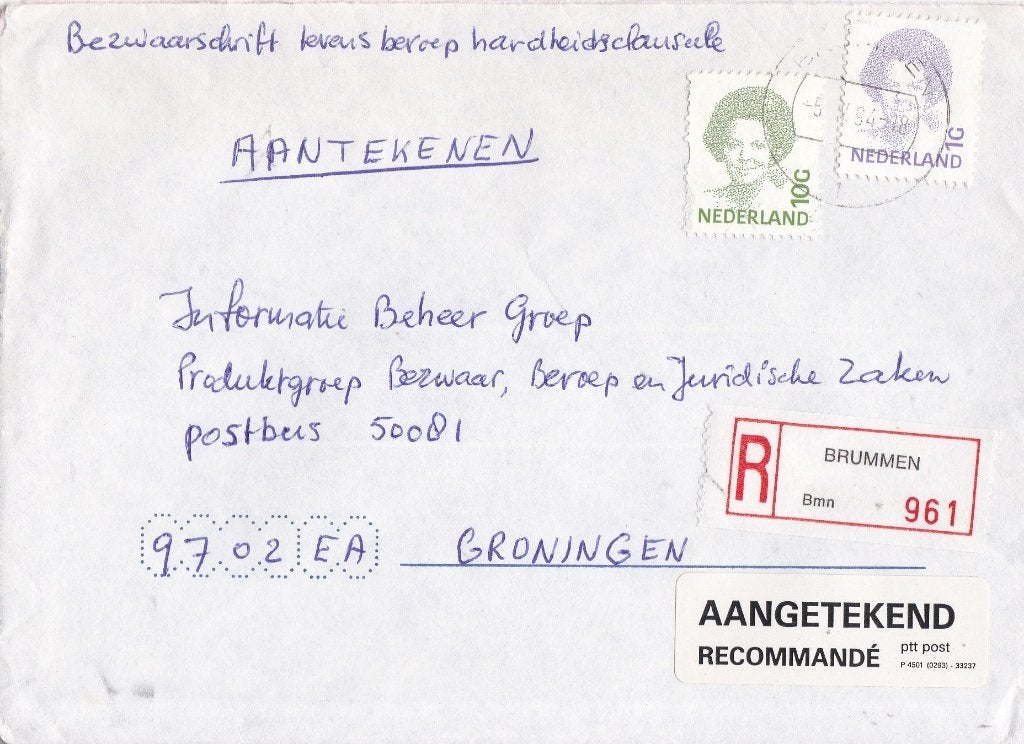 Bezwaarschrift tevens beroep hardheidsclausule
AANTEKENEN
NEDERLAND 10G
NEDERLAND 1G
-5 94-18
Informatie Beheer Groep
Produktgroep Bezwaar, Beroep en Juridische Zaken
postbus 50081
R
BRUMMEN
Bmn 961
9702 EA GRONINGEN
AANGETEKEND
RECOMMANDÉ
ptt post
P 4501 (0293) - 33237